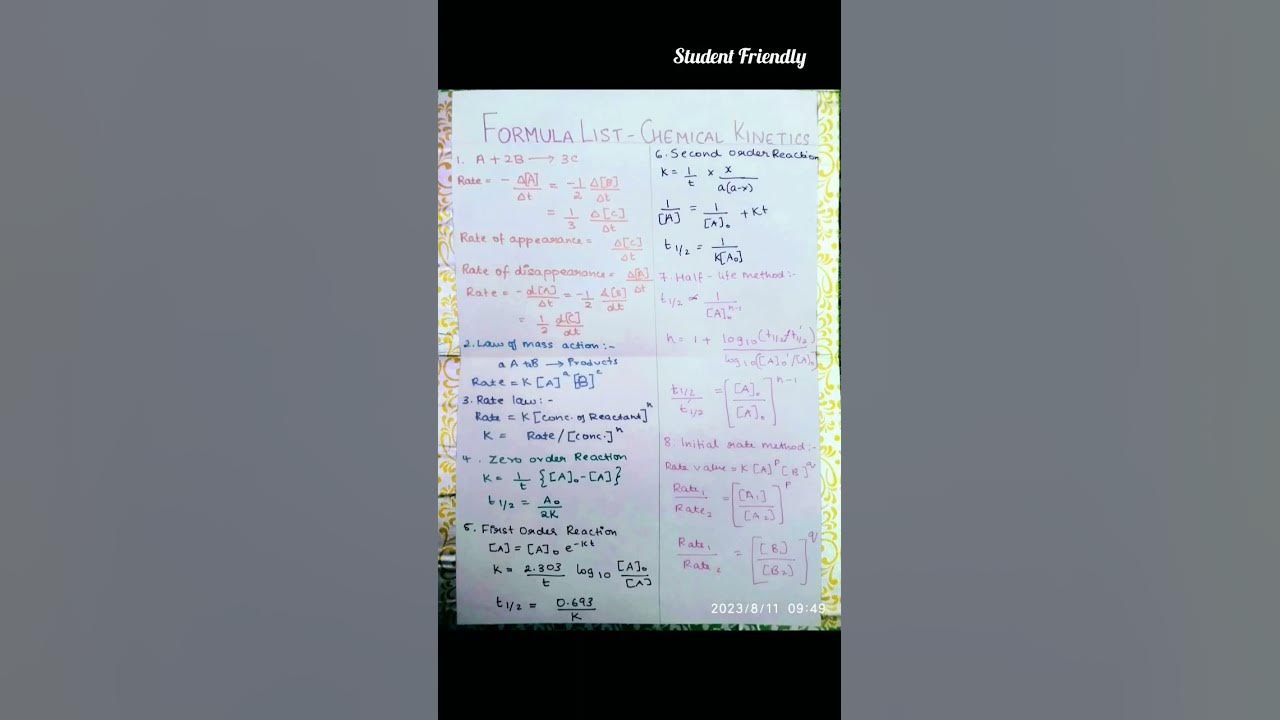 Student Friendly
FORMULA LIST - CHEMICAL KINETICS
1. A + 2B ⟶ 3C
Rate = - Δ[A]/Δt = -1/2 Δ[B]/Δt
= 1/3 Δ[C]/Δt
Rate of appearance = Δ[C]/Δt
Rate of disappearance = Δ[A]/Δt
Rate = - d[A]/Δt = -1/2 d[B]/dt
= 1/2 d[C]/dt
2. Law of mass action :-
aA + B ⟶ Products
Rate = K [A]^a [B]^c
3. Rate law :-
Rate = K [conc. of Reactant]^n
K = Rate / [conc.]^n
4. Zero order Reaction
K = 1/t {[A]₀ - [A]}
t 1/2 = A₀/2K
5. First Order Reaction
[A] = [A]₀ e^-Kt
K = 2.303/t log₁₀ [A]₀/[A]
t 1/2 = 0.693/K
6. Second order Reaction
K = 1/t × x/a(a-x)
1/[A] = 1/[A]₀ + Kt
t 1/2 = 1/K[A₀]
7. Half - life method :-
t 1/2 ∝ 1/[A]₀^n-1
n = 1 + log₁₀(t1/2/t'1/2)/log₁₀([A]₀'/[A]₀)
t1/2/t'1/2 = [[A]₀/[A]₀]^n-1
8. Initial rate method :-
Rate value = K [A]^p [B]^q
Rate₁/Rate₂ = [[A₁]/[A₂]]^p
Rate₁/Rate₂ = [[B]/[B₂]]^q
2023/8/11 09:49